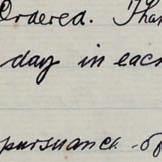 Ordered. Than
day in each
pursuance of